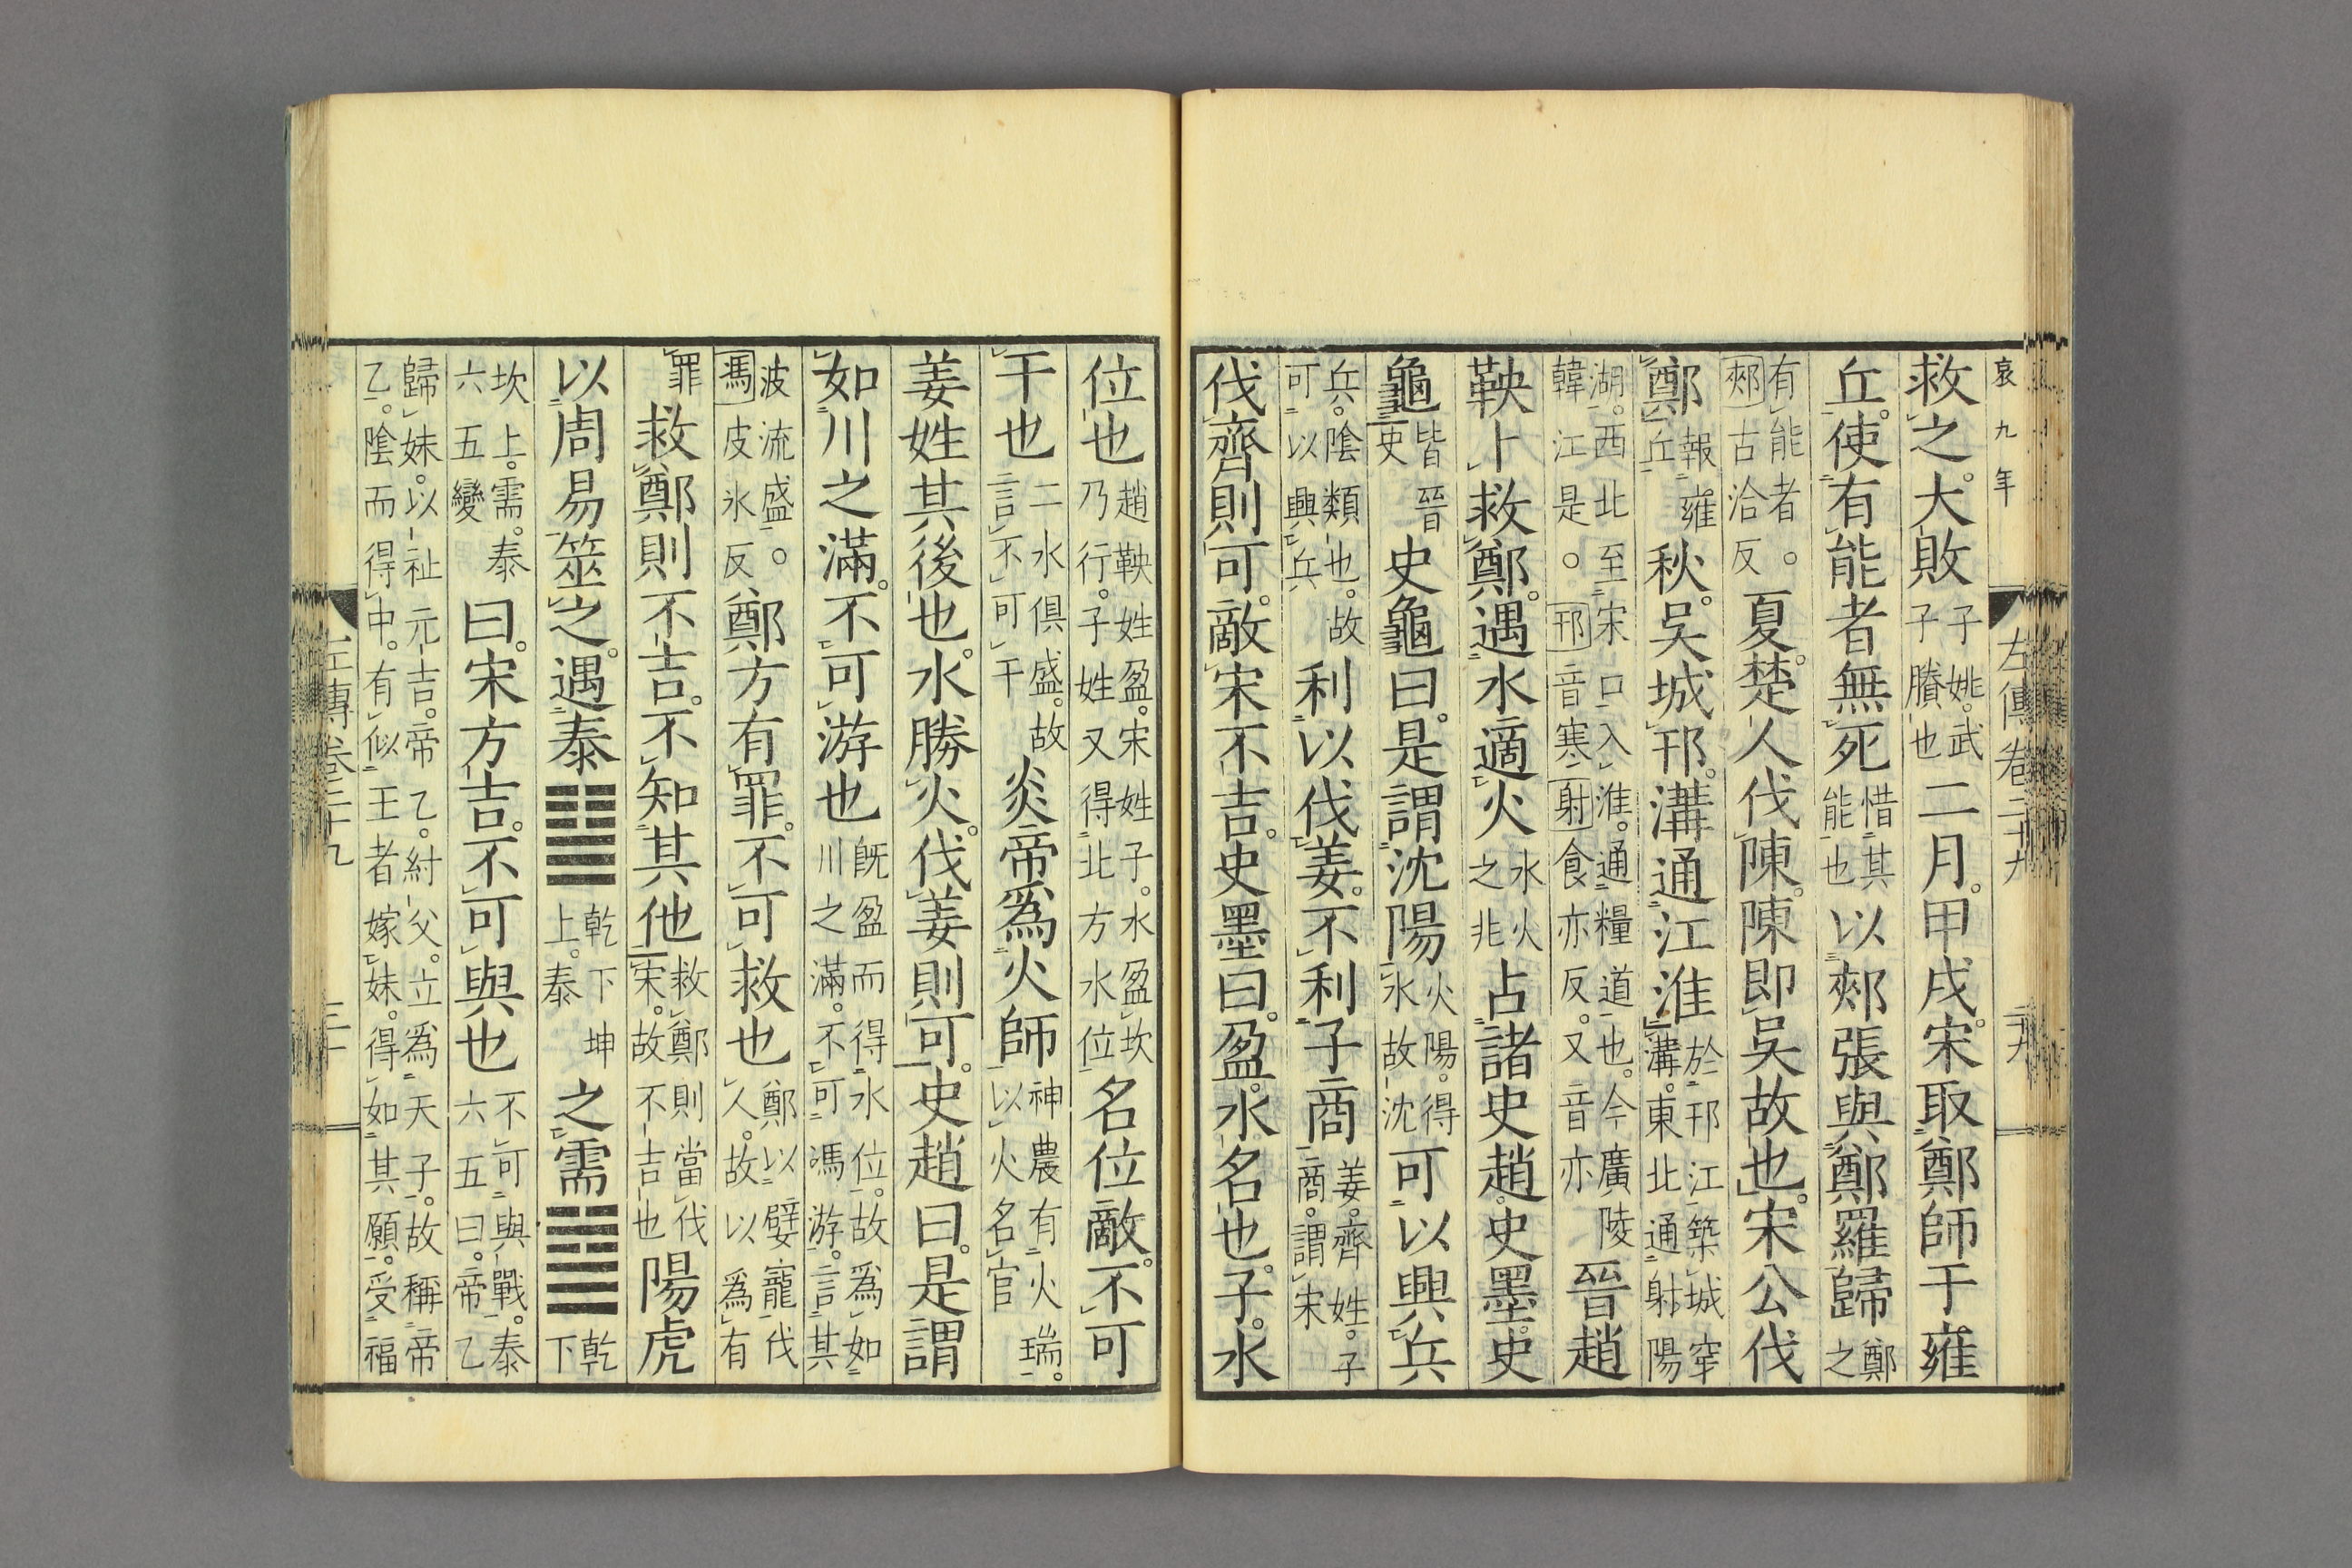 哀九年
左傳卷二十九
二十九
救之。大敗子姚。武子賸也二月。甲戌。宋取鄭師于雍
丘。使有能者無死惜其能也以郟張與鄭羅歸鄭之
有能者。郟古洽反夏。楚人伐陳。陳即吳故也。宋公伐
鄭報雍丘秋。吳城邗。溝通江淮於邗江築城穿溝。東北通射陽
湖。西北至宋口入淮。通糧道也。今廣陵韓江是。邗音寒射食亦反。又音亦晉趙
鞅卜救鄭。遇水適火水火之兆占諸史趙。史墨。史
龜皆晉史史龜曰。是謂沈陽火陽。得水故沈可以興兵
兵。陰類也。故可以興兵利以伐姜。不利子商姜。齊姓。子商。謂宋
伐齊則可。敵宋不吉。史墨曰。盈。水名也。子。水
位也趙鞅姓盈。宋姓子。水盈坎乃行。子姓又得北方水位名位敵。不可
干也二水俱盛。故言不可干炎帝爲火師神農有火瑞。以火名官
姜姓其後也。水勝火。伐姜則可。史趙曰。是謂
如川之滿。不可游也既盈而得水位。故爲如川之滿。不可馮游。言其
波流盛。馮皮氷反鄭方有罪。不可救也鄭以嬖寵伐人。故以爲有
罪救鄭則不吉。不知其他救鄭則當伐宋。故不吉也陽虎
以周易筮之。遇泰䷊乾下坤上。泰之需䷄乾下
坎上。需。泰六五變曰。宋方吉。不可與也不可與戰。泰六五曰。帝乙
歸妹。以祉元吉。帝乙。紂父。立爲天子。故稱帝乙。陰而得中。有似王者嫁妹。得如其願。受福
左傳卷二十九
三十